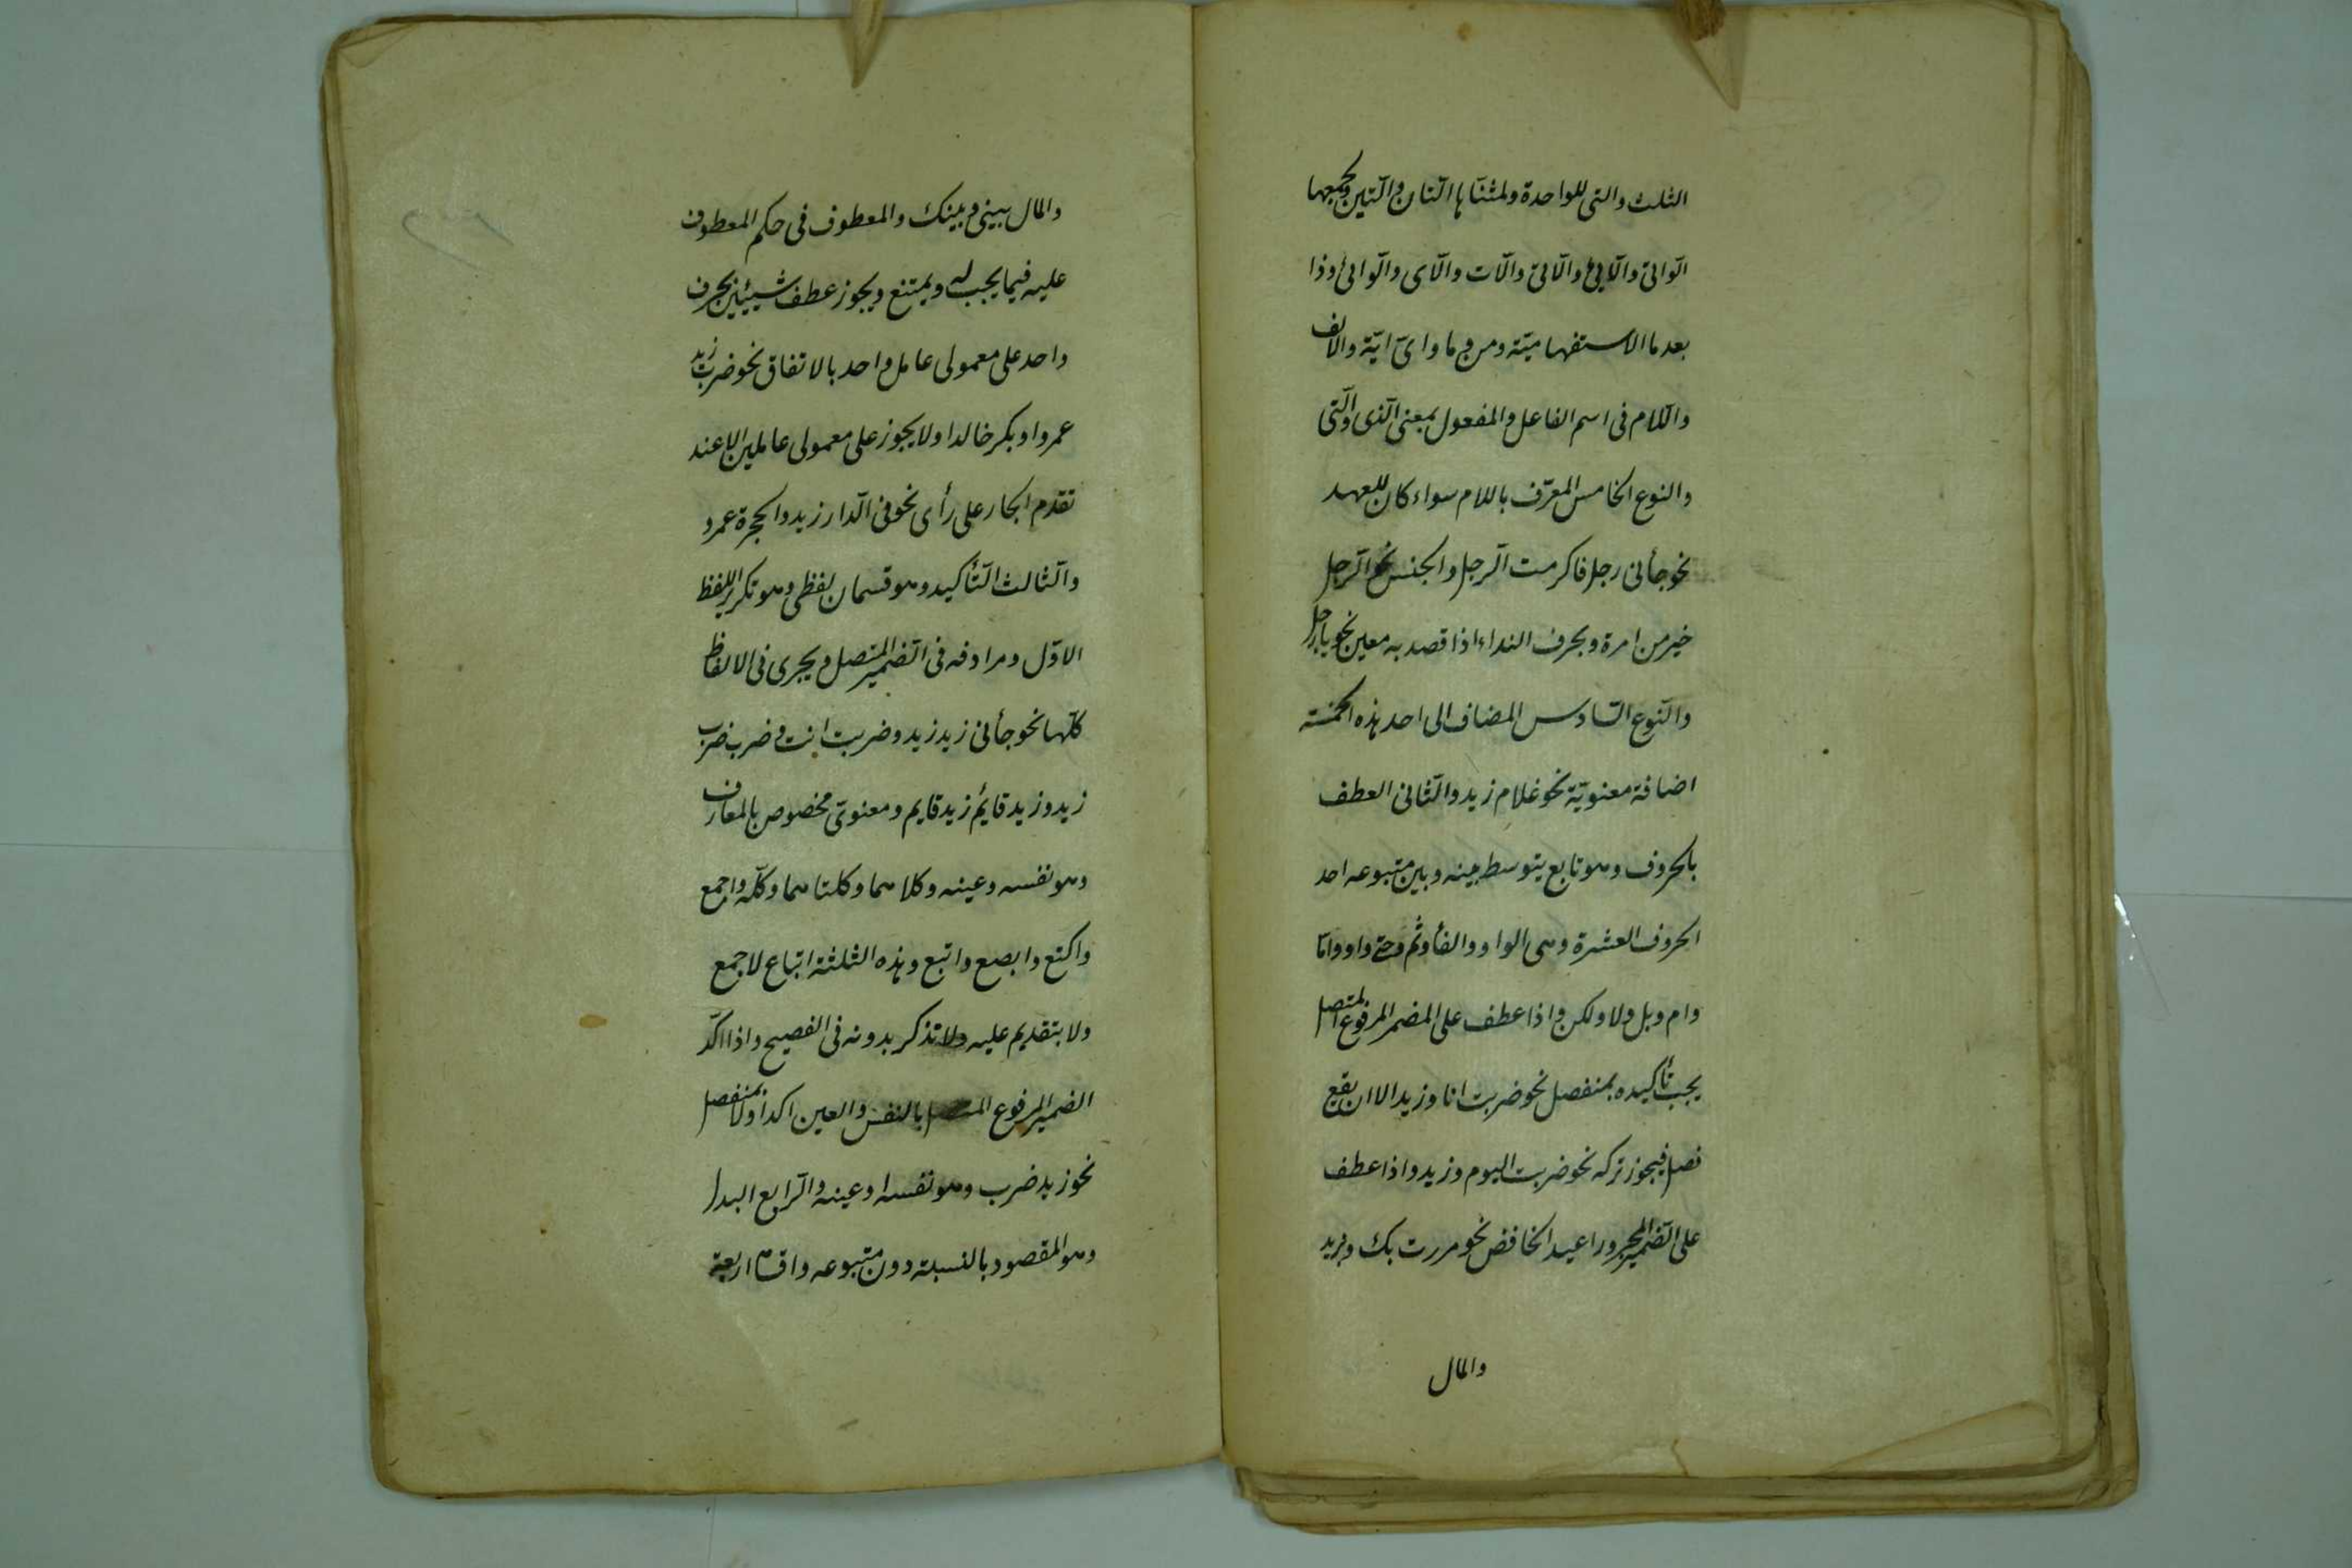 الثلث والتى للواحدة ولمثنّاها الّتان والّتين ولجمعها
الّواتى والّائى والّاتى والّات والّاى والّوائى وذا
بعد ما الاستفهاميّة ومن وما واىّ ايّة والالف
والّلام فى اسم الفاعل والمفعول بمعنى الّذى والّتى
والنوع الخامس المعرّف باللام سواء كان للعهد
نحو جأنى رجل فاكرمت الّرجل والجنس نحو الّرجل
خير من امرة وبحرف النداء اذا قصد به معين نحو يا رجل
والنّوع السّادس المضاف الى احد هذه الخمسة
اضافة معنويّة نحو غلام زيد والثّانى العطف
بالحروف وهو تابع يتوسط بينه وبين متبوعه احد
الحروف العشرة وهى الواو والفأ وثم وحتى واو وامّا
وام وبل ولا ولكن واذا عطف على المضمر المرفوع المتصل
يجب تأكيده بمنفصل نحو ضربت انا وزيد الا ان يقع
فصل فيجوز تركه نحو ضربت اليوم وزيد واذا عطف
على الضّمير المجرور اعيد الخافض نحو مررت بك وبزيد
والمال
والمال بينى وبينك والمعطوف فى حكم المعطوف
عليه فيما يجب له ويمتنع ويجوز عطف شيئين بحرف
واحد على معمولى عامل واحد بالاتفاق نحو ضرب زيد
عمروا وبكر خالدا ولا يجوز على معمولى عاملين الا عند
تقدم الجار على رأى نحو فى الّدار زيد والحجرة عمرو
والثّالث التّأكيد وهو قسمان لفظى وهو تكرير اللفظ
الاوّل ومرادفه فى الضّمير المتصل ويجرى فى الالفاظ
كلّها نحو جأنى زيد زيد وضربت انت وضرب ضرب
زيد وزيد قايم زيد قايم ومعنوىّ مخصوص بالمعارف
وهو نفسه وعينه وكلاهما وكلتاهما وكلّه واجمع
واكتع وابصع واتبع وهذه الثلثة اتباع لاجمع
ولا بتقديم عليه ولا تذكر بدونه فى الفصيح واذا اكّد
الضمير المرفوع المتصل بالنفس والعين اكد اولا بمنفصل
نحو زيد ضرب وهو نفسه او عينه والّرابع البدل
وهو المقصود بالنسبة دون متبوعه واقسام اربعة